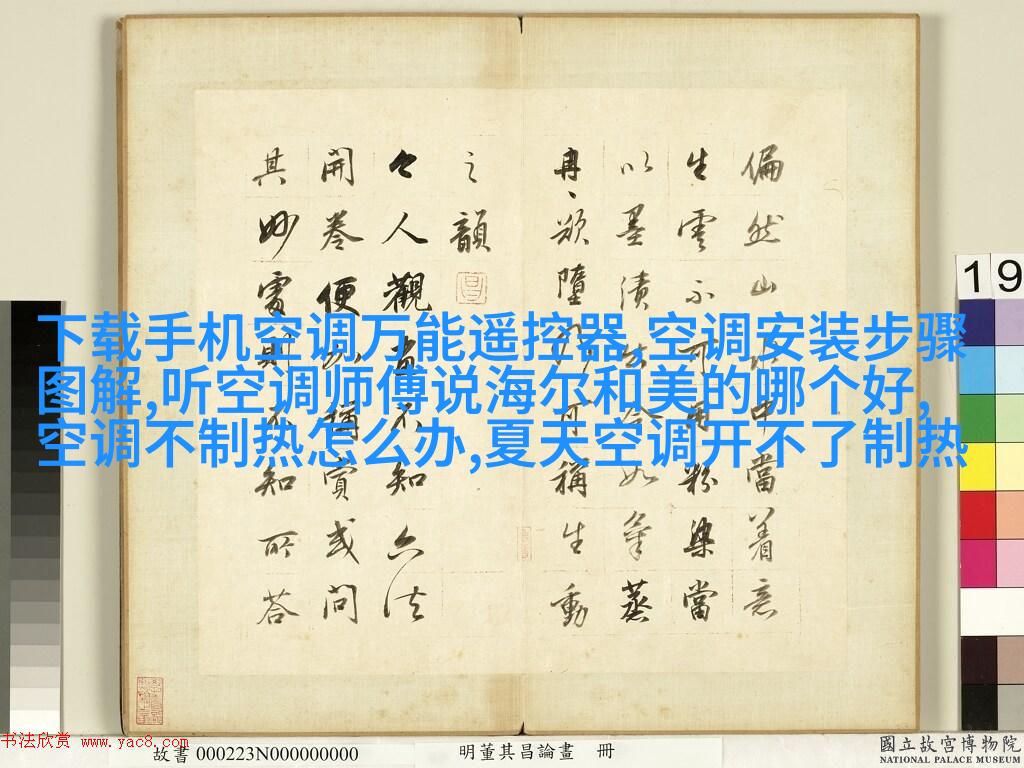 下载手机空调万能遥控器,空调安装步骤
图解,听空调师傅说海尔和美的哪个好,
空调不制热怎么办,夏天空调开不了制热
偏然山中當着意
生雲不可用粉染當
以墨漬出令如氣蒸
冉、欲墮乃可稱生動
之韻
昌
々人觀畫不知六法
開卷便以稱賞或問
其妙處則不知所答
19
书法欣赏 www.yac8.com
故書 000223N000000000
明董其昌論畫 冊
國立故宮博物院
NATIONAL PALACE MUSEUM